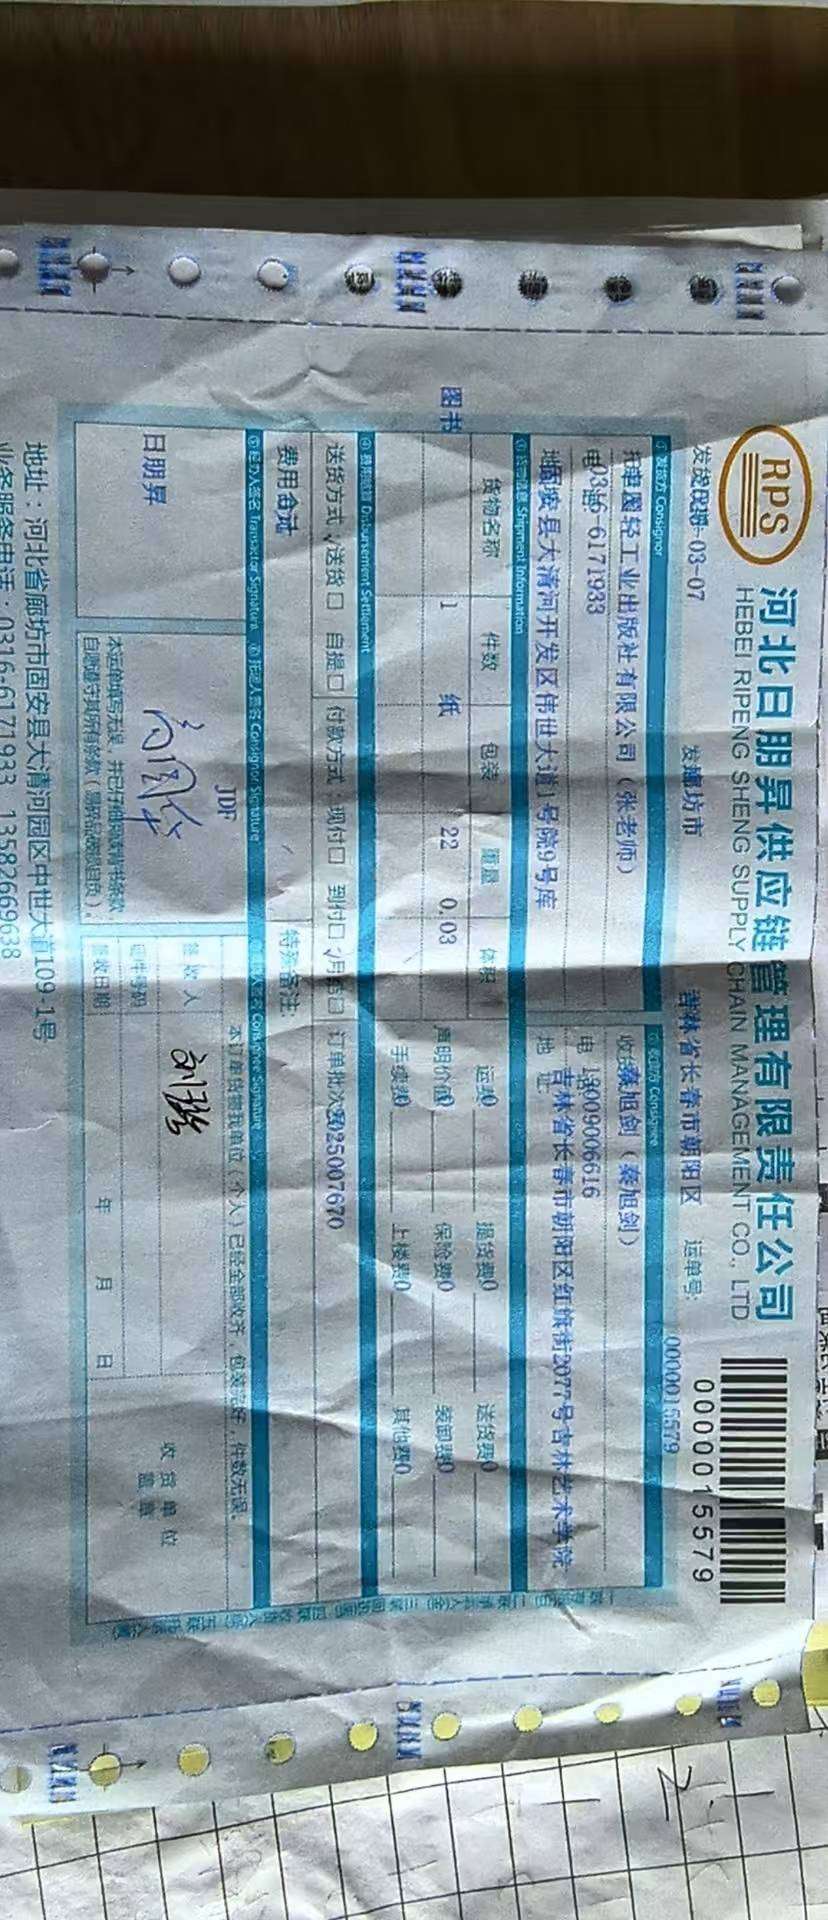 RPS
河北日朋昇供应链管理有限责任公司
HEBEI RIPENG SHENG SUPPLY CHAIN MANAGEMENT CO., LTD
0000015579
03-07
廊坊市
吉林省长春市朝阳区
运单号:
0000015579
发货方 Consignor
收货方 Consignee
轻工业出版社有限公司（张老师）
秦旭剑（秦旭剑）
0316-6171933
13009006616
固安县大清河开发区伟世大道1号院9号库
吉林省长春市朝阳区红旗街2077号吉林艺术学院
货物信息 Shipment Information
货物名称 件数 包装 重量 体积
图书 1 纸 22 0.03
运费0 提货费0 送货费0
声明价值0 保险费0 装卸费0
手续费0 上楼费0 其他费0
费用结算 Disbursement Settlement
送货方式 送货□ 自提□ 付款方式：现付□ 到付□ 订单批次 025007670
费用合计
特殊备注:
经办人签名 Transactor Signature
托运人签名 Consignor Signature
收货人签名 Consignee Signature
日朋昇
JDF
本订单货物我单位（个人）已经全部收齐，包装完好，件数无误。
签收人
证件号码
签收日期:
年 月 日
收货单位
盖章
本运单填写无误，并已仔细阅读背书条款
地址：河北省廊坊市固安县大清河园区中世大道109-1号
业务服务电话：0316-6171933 13582669638